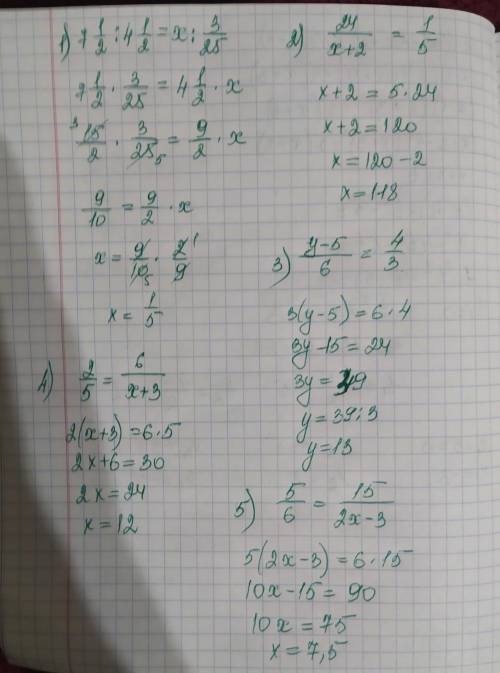 1) 7 1/2 : 4 1/2 = x : 3/25
7 1/2 · 3/25 = 4 1/2 · x
3 15/2 · 3/25 5 = 9/2 · x
9/10 = 9/2 · x
x = 9/10 5 · 2 1/9
x = 1/5
2) 24/(x+2) = 1/5
x+2 = 5·24
x+2 = 120
x = 120-2
x = 118
3) (y-5)/6 = 4/3
3(y-5) = 6·4
3y-15 = 24
3y = 39
y = 39:3
y = 13
4) 2/5 = 6/(x+3)
2(x+3) = 6·5
2x+6 = 30
2x = 24
x = 12
5) 5/6 = 15/(2x-3)
5(2x-3) = 6·15
10x-15 = 90
10x = 75
x = 7,5